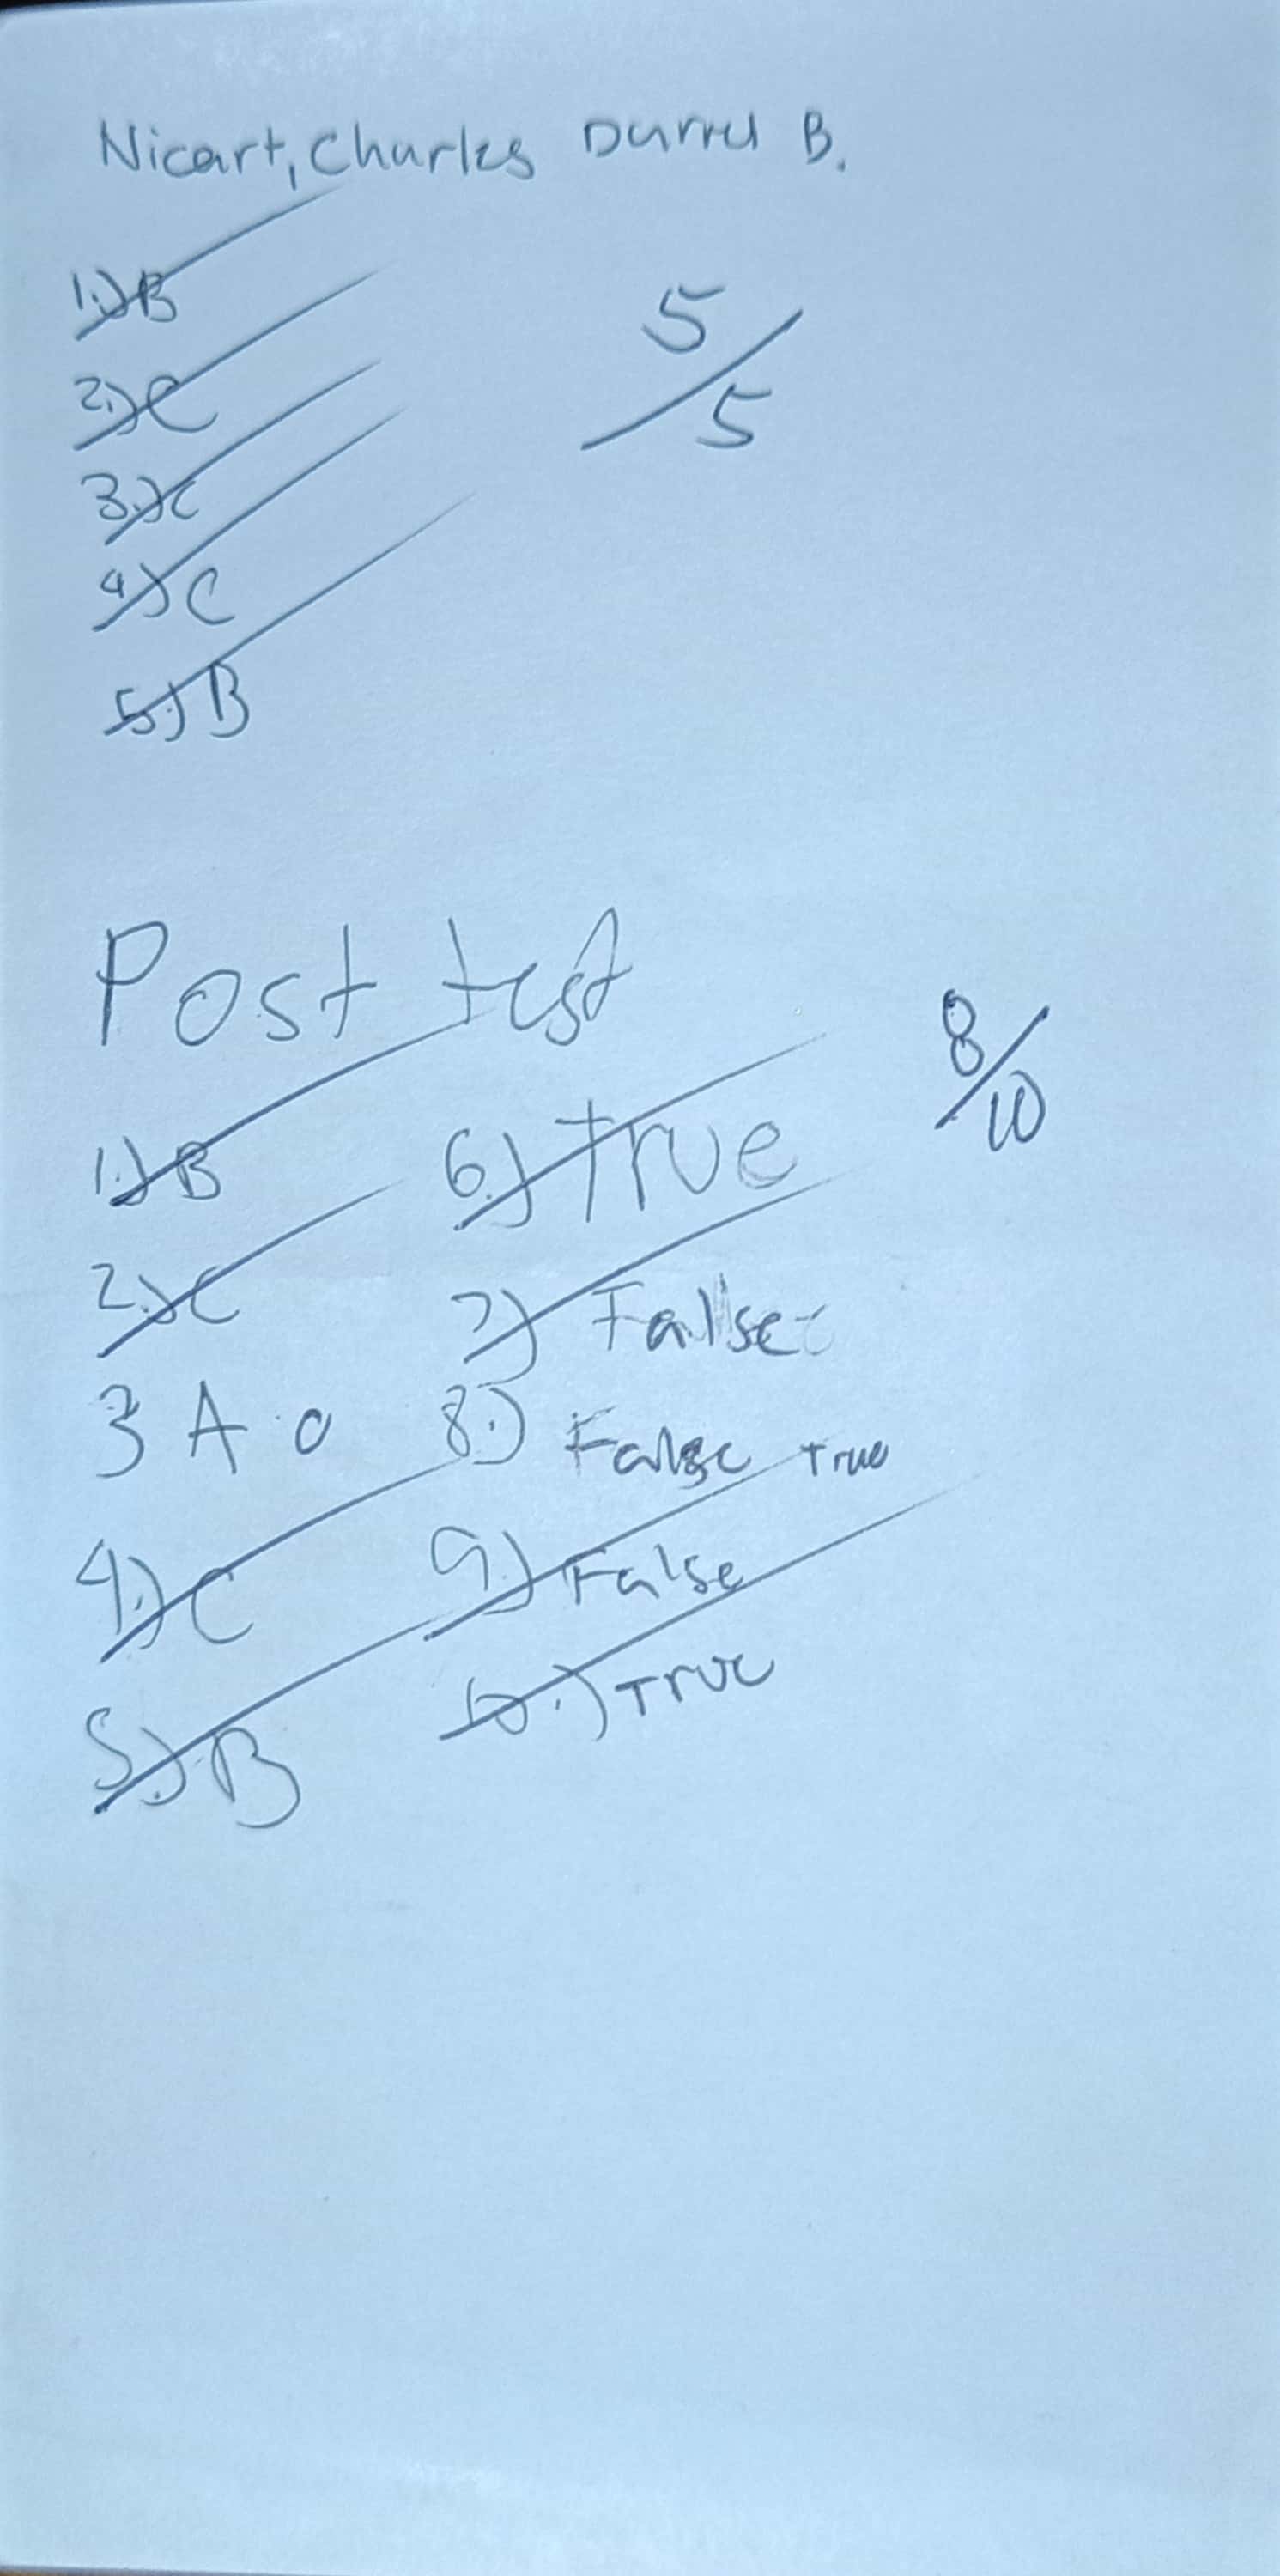 Nicart, Charles Darrel B.
1.) B
2.) C
3.) C
4.) C
5.) B
5/5
Post test
8/10
1.) B
2.) C
3 A
4.) C
5.) B
6.) True
7.) False
8.) False True
9.) False
10.) True